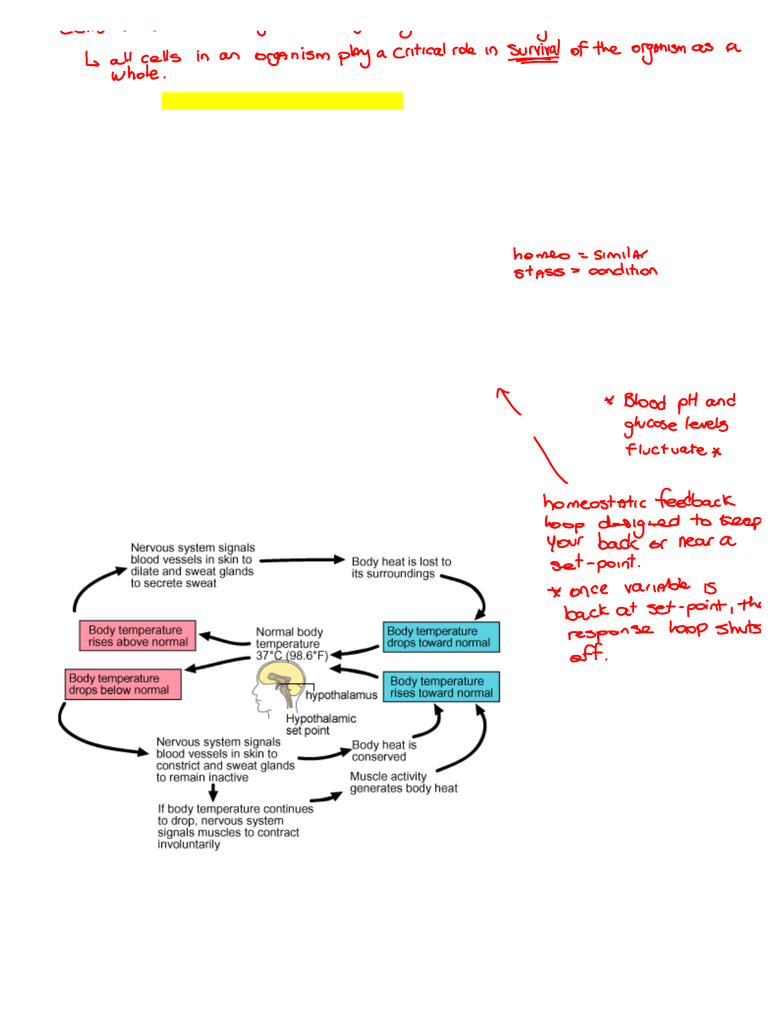 ↳ all cells in an organism play a critical role in survival of the organism as a
whole.
homeo = similar
stasis = condition
* Blood pH and
glucose levels
fluctuate *
homeostatic feedback
loop designed to keep
your back or near a
set-point.
* once variable is
back at set-point, the
response loop shuts
off.
Nervous system signals
blood vessels in skin to
dilate and sweat glands
to secrete sweat
Body heat is lost to
its surroundings
Body temperature
rises above normal
Normal body
temperature
37°C (98.6°F)
Body temperature
drops toward normal
Body temperature
drops below normal
hypothalamus
Hypothalamic
set point
Body temperature
rises toward normal
Nervous system signals
blood vessels in skin to
constrict and sweat glands
to remain inactive
Body heat is
conserved
Muscle activity
generates body heat
If body temperature continues
to drop, nervous system
signals muscles to contract
involuntarily